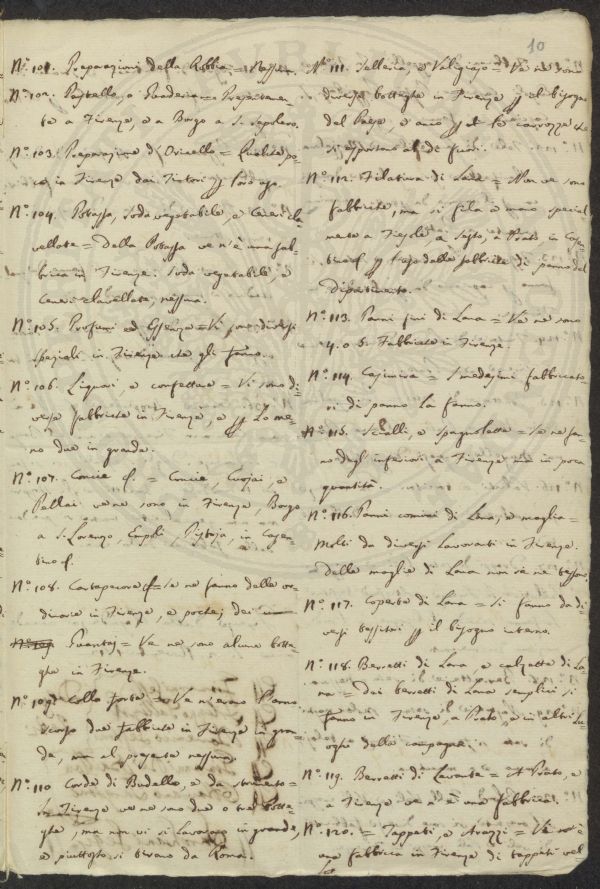 10
N.° 101. Preparazioni della Robbia = Nessuna.
N.° 102. Pastello, o Guado =
= a Firenze, e a Borgo a S. Sepolcro.
N.° 103. Preparazione d'Oricello = Qualche po=
co in Firenze dai Tintori p loro uso.
N.° 104. Potassa, Soda vegetabile, e Ceneri cla=
vellate = Della Potassa ve n'è una fab=
brica in Firenze. Soda vegetabile, e
Ceneri clavellate, nessuna.
N.° 105. Profumi ed Essenze = Vi sono diversi
speziali in Firenze che gli fanno.
N.° 106. Liquori e confetture = Vi sono di=
verse fabbriche in Firenze, e p lo me=
no due in grande.
N.° 107. Concie &. = Concie, Cuojai, e
Pellai ve ne sono in Firenze, Borgo
a S. Lorenzo, Empoli, Pistoja, in Casen=
tino &.
N.° 108. Cartapecore &. = Se ne fanno delle or=
dinarie in Firenze, e poche; dei
Guantaj = Ve ne sono alcune botte=
ghe in Firenze.
N.° 109. Colla forte = Ve n'erano l'anno
scorso due fabbriche in Firenze in gran=
de, ora al presente nessuna.
N.° 110 Corde di Budello, e da strumento =
In Firenze ve ne sono due o tre botte=
ghe, ma non vi si lavora in grande,
e piuttosto si tirano da Roma.
N.° 111. Selleria, e Valigiajo = Ve ne sono
diverse botteghe in Firenze p il bisogno
del Paese, e anco p le carrozze che
si esportano al di fuori.
N.° 112. Filatura di Lane = Non ve sono
fabbriche, ma si fila a mano special=
mente a Fiesole a Sesto, a Prato, in Casen=
tino &. p uso delle fabbriche di panno del
Dipartimento.
N.° 113. Panni fini di Lana = Ve ne sono
4. o 5. Fabbriche in Firenze
N.° 114. Casimira = I medesimi fabbricato=
ri di panno la fanno.
N.° 115. Scialli, e Spagnolette = Se ne fan=
no degl'inferiori a Firenze ma in poca
quantità.
N.° 116. Panni comuni di Lana, e maglia =
Molti da diversi Lavoranti in Firenze.
Delle maglie di Lana non se ne tessono.
N.° 117. Coperte di Lana = Si fanno da di=
versi tessitori p il bisogno interno.
N.° 118. Berretti di Lana, e calzette di La=
na = Dei berretti di Lana semplici si
fanno in Firenze, a Prato, e in altri Lu=
oghi della campagna.
N.° 119. Berretti di Levante = A Prato, e
a Firenze ve n'è una fabbrica.
N.° 120. = Tappeti, e Arazzi = Ve n'è
una fabbrica in Firenze di tappeti vel